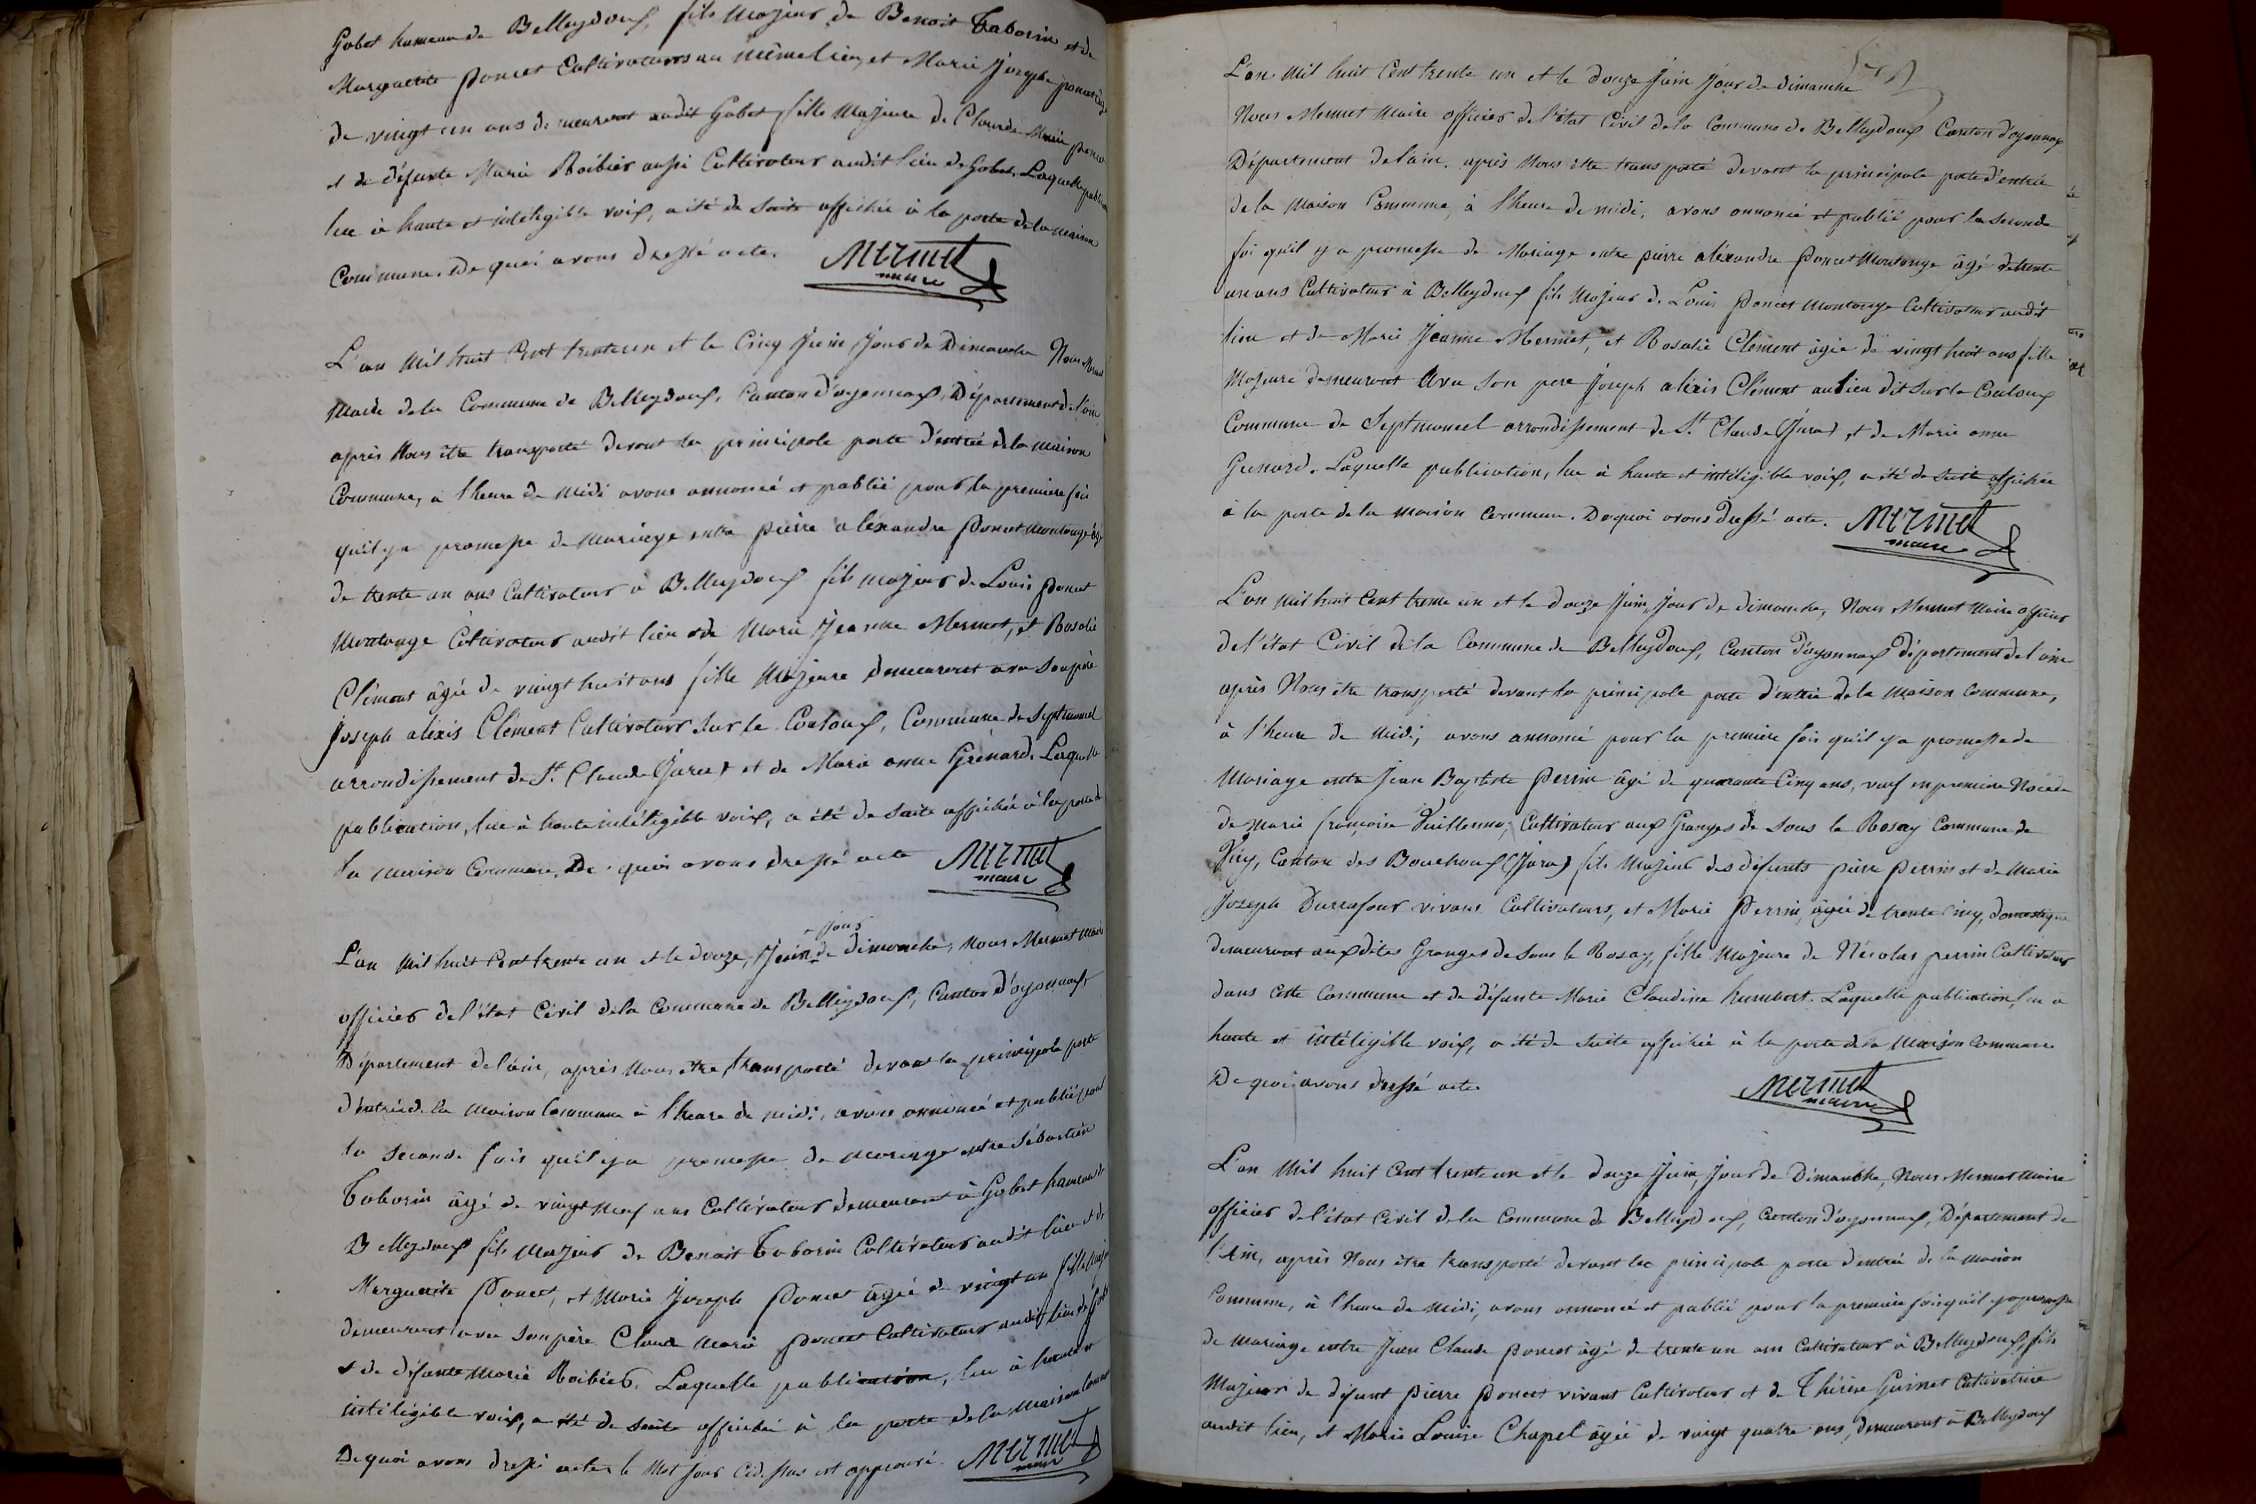 Gobet hameau de Belleydoux, fils Majeur de Benoit Taborin et de
Marguerite Poncet Cultivateurs au même lieu, et Marie Joseph poncet âgée
de vingt un ans demeurant audit Gobet, fille Majeure de Claude Marie poncet
et de défunte Marie Roibier aussi Cultivateur audit lieu de Gobet. Laquelle publication
lue à haute et inteligible voix, a été de Suite affichée à la porte de la maison
Commune. De quoi avons dressé acte. Mermet
maire
L'an Mil huit Cent trente un et le Cinq Juin, Jour de Dimanche Nous Mermet
Maire de la Commune de Belleydoux, Canton d'oyonnax, Département de l'ain
après Nous être transporté devant la principale porte d'entrée de la maison
Commune, à l'heure de Midi avons annoncé et publié pour la première fois
qu'il y a promesse de mariage entre pierre alexandre Poncet Montange âgé
de trente un ans Cultivateur à Belleydoux fils majeur de Louis Poncet
Montange Cultivateur audit lieu et de Marie Jeanne Mermet, et Rosalie
Clément âgée de vingt huit ans fille Majeure Demeurant avec Son père
Joseph alexis Clément Cultivateur Sur le Couloux, Commune de Septmoncel
arrondissement de St. Claude (Jura) et de Marie anne Grenard. Laquelle
publication, lue à haute intéligible voix, a été de Suite affichée à la porte de
la maison Commune. De quoi avons dressé acte Mermet
maire
jour
L'an Mil huit Cent trente un et le douze, Juin de dimanche, Nous Mermet Maire
officier de l'état Civil de la Commune de Belleydoux, Canton d'oyonnax,
Département de l'ain, après Nous être transporté devant la principale porte
d'entrée de la maison Commune à l'heure de midi, avons annoncé et publié pour
la Seconde fois qu'il y a promesse de mariage entre Sébastien
Taborin âgé de vingt Neuf ans Cultivateur demeurant à Gobet hameau de
Belleydoux fils Majeur de Benoit Taborin Cultivateur audit lieu et de
Marguerite Poncet, et Marie Joseph Poncet âgée de vingt un fille Majeure
demeurant avec Son père Claude Marie Poncet Cultivateur audit lieu de Gobet
et de défunte Marie Roibier. Laquelle publication, lue à haute et
intéligible voix, a été de Suite affichée à la porte de la Maison Commune
De quoi avons dressé acte le Mot jour Ci-dessus est approuvé. Mermet
maire
L'an Mil huit Cent trente un et le douze Juin Jour de dimanche
Nous Mermet Maire officier de l'état Civil de la Commune de Belleydoux Canton d'oyonnax
Département de l'ain. après Nous être transporté devant la principale porte d'entrée
de la Maison Commune, à l'heure de midi, avons annoncé et publié pour la Seconde
foi qu'il y a promesse de Mariage entre pierre alexandre Poncet Montange âgé de trente
un ans Cultivateur à Belleydoux fils Majeur de Louis Poncet Montange Cultivateur audit
lieu et de Marie Jeanne Mermet, et Rosalie Clément âgée de vingt huit ans fille
Majeure demeurant avec Son pere Joseph alexis Clément au lieu dit Sur le Couloux
Commune de Septmoncel arrondissement de St. Claude (Jura) et de Marie anne
Grenard. Laquelle publication, lue à haute et intéligible voix, a été de Suite affichée
à la porte de la maison Commune. De quoi avons dressé acte. Mermet
maire
L'an Mil huit Cent trente un et le douze Juin, Jour de dimanche, Nous Mermet Maire officier
de l'état Civil de la Commune de Belleydoux, Canton d'oyonnax département de l'ain
après Nous être transporté devant la principale porte d'entrée de la Maison Commune,
à l'heure de Midi, avons annoncé pour la première fois qu'il y a promesse de
Mariage entre Jean Baptiste Perrin âgé de quarante Cinq ans, veuf en première Noce de
de Marie françoise Vuillermoz, Cultivateur aux Granges de Sous le Rosay Commune de
Viry, Canton des Bouchoux (Jura) fils Majeur des défunts pierre Perrin et de Marie
Joseph Durrafour vivant Cultivateurs, et Marie Perrin, âgée de trente Cinq, domestique
demeurant auxdites Granges de Sous le Rosay, fille Majeure de Nicolas perrin Cultivateur
dans Cette Commune et de défunte Marie Claudine humbert. Laquelle publication, lue à
haute et intéligible voix, a été de Suite affichée à la porte de la Maison Commune
De quoi avons dressé acte. Mermet
maire
L'an Mil huit Cent trente un et le douze Juin, Jour de Dimanche, Nous Mermet Maire
officier de l'état Civil de la Commune de Belleydoux, Canton d'oyonnax, Département de
l'Ain, après Nous être transporté devant la principale porte d'entrée de la maison
Commune, à l'heure de Midi, avons annoncé et publié pour la première fois qu'il y a promesse
de mariage entre Jean Claude Poncet âgé de trente un ans Cultivateur à Belleydoux, fils
Majeur de défunt pierre Poncet vivant Cultivateur et de Thérèse Guinet Cultivatrice
audit lieu, et Marie Louise Chapel âgée de vingt quatre ans, demeurant à Belleydoux